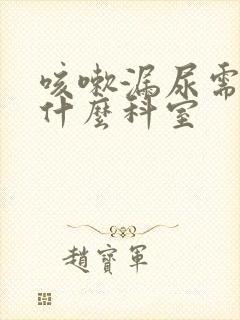 咳嗽漏尿需
什麼科室
趙寶軍